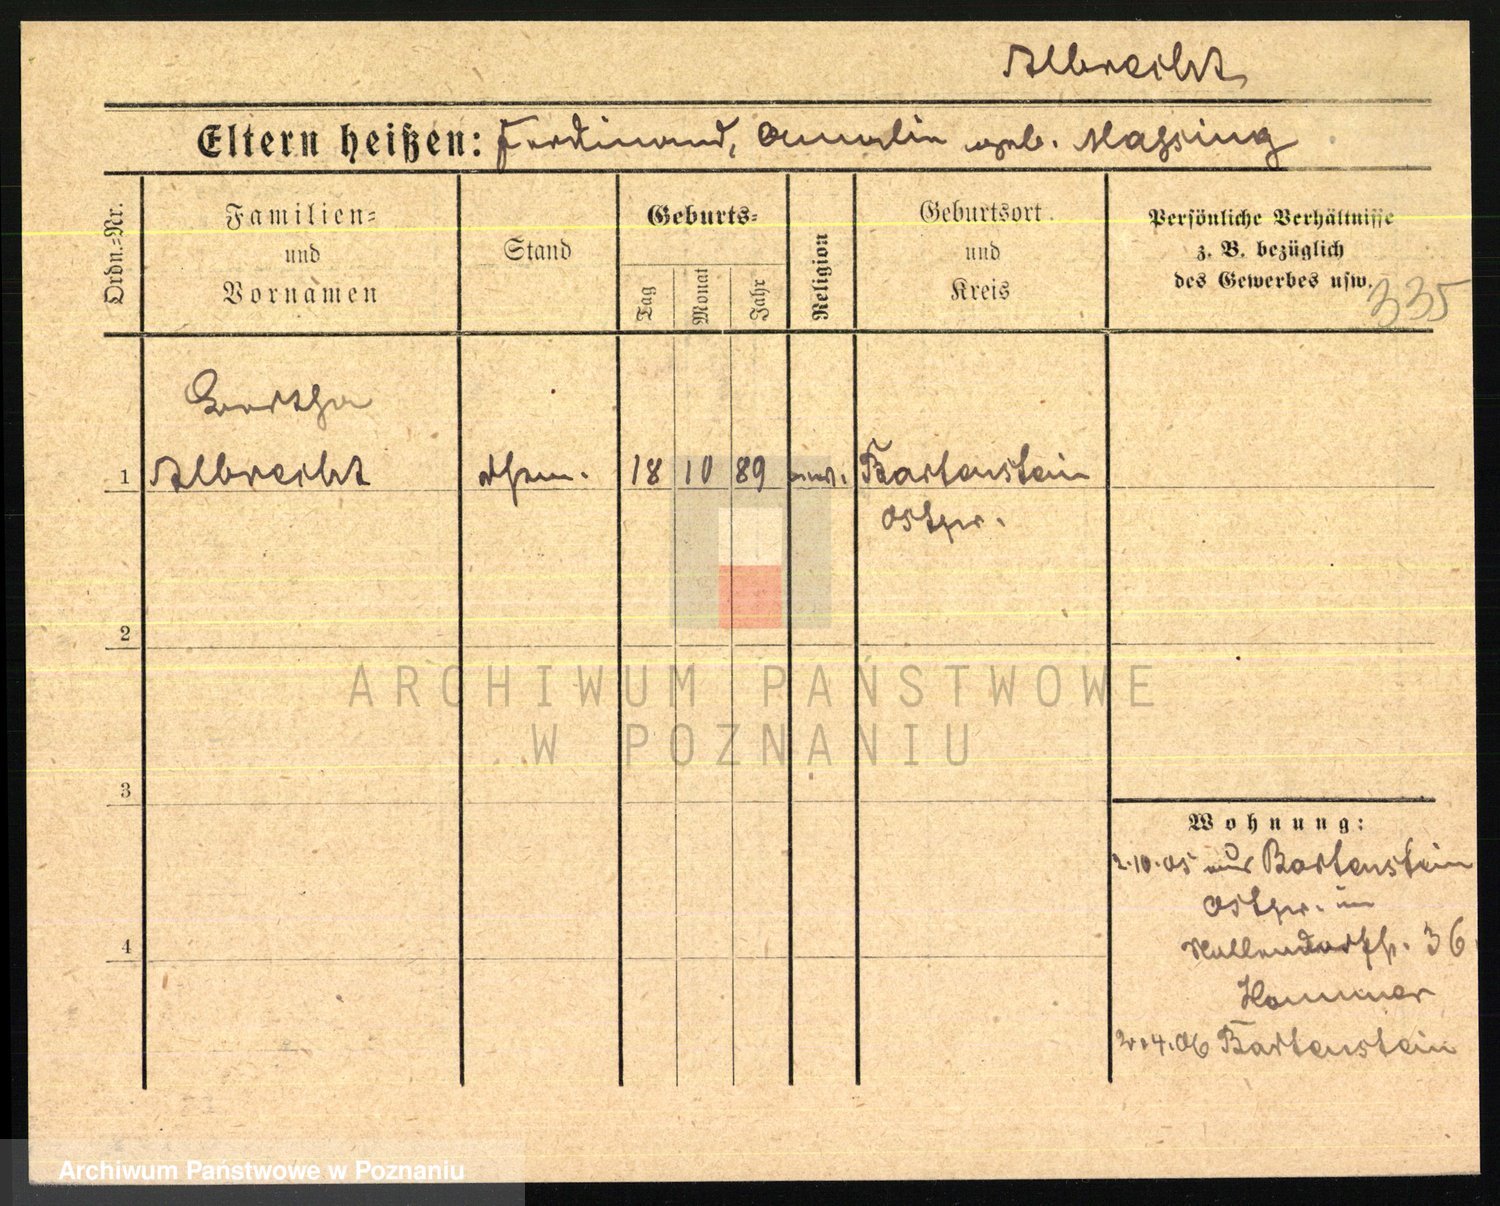 Albrecht
Eltern heißen: Ferdinand, Amalie geb. Massing
Ordn.=Nr.
Familien=
und
Vornamen
Stand
Geburts=
Tag
Monat
Jahr
Religion
Geburtsort
und
Kreis
Persönliche Verhältnisse
z. B. bezüglich
des Gewerbes usw.
335
Bertha
1 Albrecht 18 10 89 Bartenstein
Ostpr.
2
3
4
Wohnung:
2.10.05 aus Bartenstein
Ostpr. in
36
Hammer
4.06 Bartenstein
ARCHIWUM PAŃSTWOWE
W POZNANIU
Archiwum Państwowe w Poznaniu